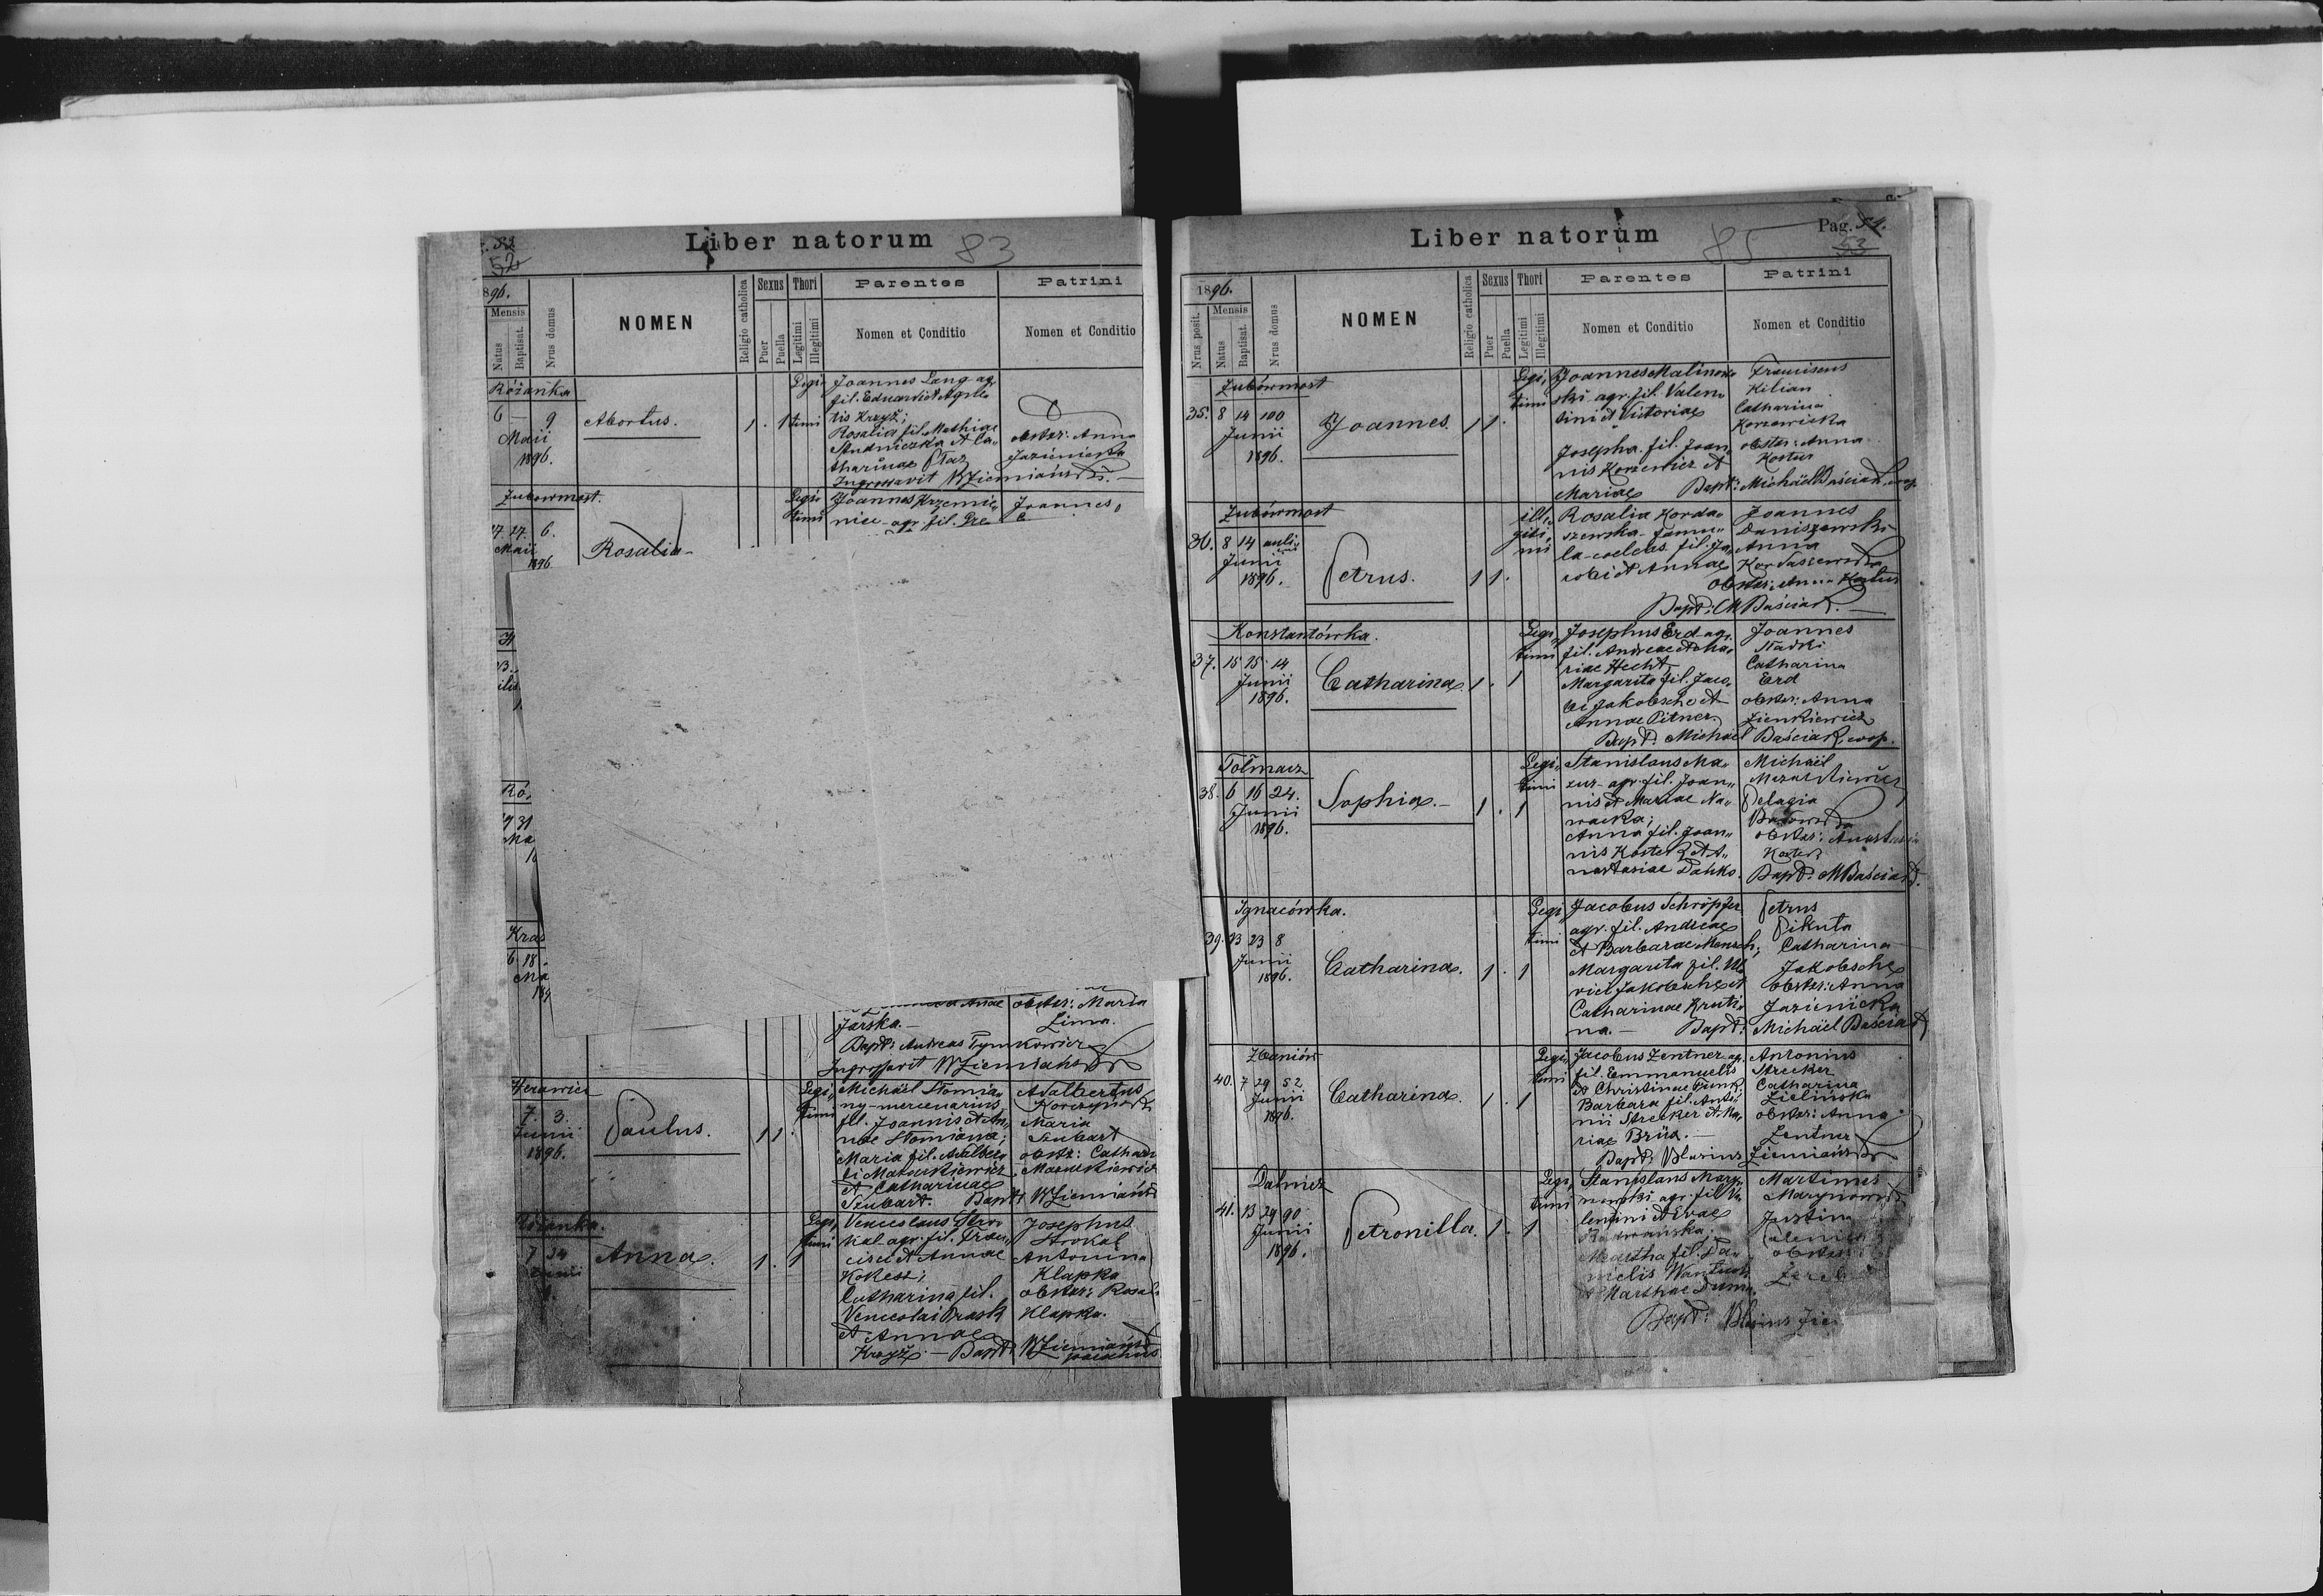 52
Liber natorum 83
1896.
Mensis
Natus
Baptisat.
Nrus domus
NOMEN
Religio catholica
Sexus
Puer
Puella
Thori
Legitimi
Illegitimi
Parentes
Nomen et Conditio
Patrini
Nomen et Conditio
Różanka
6 — 9
Maii
1896.
Abortus.
1 . 1
Legi-
timi
Joannes Lang agr.
fil. Eduardi et Agne-
tis Krzyż;
Rosalia fil. Mathiae
Studniczka et Ca-
tharinae Ptaz
Ingrossavit WZiemiański.
obster: Anna
Jazienicka
Zubowmost.
17. 27. 6.
Maii
1896
Rosalia
Legi-
timi
Joannes Krzemie-
niec agr. fil. Gre-
Joannes
Ró.
31
Ma
Kras
6 18
Ma
189
obster: Maria
Jarska.—
Lima.
Bapt: Andreas Tymkowicz
Ingrossavit WZiemiański
7. 3.
Junii
1896.
Paulus.
1 1 .
Legi-
timi
Michaël Słomia-
ny-mercenarius
fil. Joannis et An-
nae Słomiana;
Maria fil. Adalber-
ti Mazurkiewicz
et Catharinae
Szubart. Bapt: WZiemiański
Adalbertus
Maria
Szubart
obstr: Catharin
Mazurkiewicz
Różanka.
7 24
Junii
Anna.
1 . 1
Legi-
timi
Venceslaus Stro-
kal agr. fil. Fran-
cisci et Annae
Kokesz;
Catharina fil.
Venceslai Prask
et Annae
Krzyż. — Bapt: WZiemiański
parochus
Josephus
Strokal
Antonina
Klapka
obster: Rosal
Klapka.
Liber natorum 85
Pag. 54.
53
1896.
Nrus posit.
Mensis
Natus
Baptisat.
Nrus domus
NOMEN
Religio catholica
Sexus
Puer
Puella
Thori
Legitimi
Illegitimi
Parentes
Nomen et Conditio
Patrini
Nomen et Conditio
Zubówmost
35. 8 14 100
Junii
1896.
Joannes.
1 1 .
Legi-
timi
Joannes Malinow-
ski agr. fil. Valen-
tini et Victoriae
Josepha fil. Joan-
nis Korzewicz et
Mariae
Franciscus
Kilian
Catharina
obster: Anna
Kostur
Bapt: Michaël Baściak coop.
Zubówmost
36. 8 14
Junii
1896.
Petrus.
1 1 .
ille-
giti-
mi
Rosalia Korda-
szewska famu-
la-coelebs fil. Ja-
cobi et Annae
Joannes
Daniszewski
Anna
Kordaszewska
obster: Anna Kostur
Bapt: M Baściak.—
Konstantówka.
37. 15 15 14
Junii
1896.
Catharina.
1 . 1
Legi-
timi
Josephus Erd agr.
fil. Andreae et Ma-
riae Hecht
Margarita fil. Jaco-
bi Jakobsche et
Annae Pitner
Joannes
Catharina
Erd
obster: Anna
Zienkiewicz
Bapt: Michaël Baściak coop.
Tołmacz
38. 6 16 24.
Junii
1896.
Sophia.—
1 . 1
Legi-
timi
Stanislaus Ma-
zur-agr. fil. Joan-
nis et Mariae Na-
wacka;
Anna fil. Joan-
nis Koster et A-
nastasiae Dahko.
Michaël
Mazurkiewicz
Pelagia
obster: Anastasia
Koster
Bapt: M Baściak.
Ignacówka.
39. 23 23 8
Junii
1896.
Catharina.
1 . 1
Legi-
timi
Jacobus Schröpfer
agr. fil. Andreae
et Barbarae Mensch;
Margarita fil. Ul-
rici Jakobsche et
Catharinae Kruti-
na.—
Petrus
Pikuta
Catharina
Jakobsche
obster: Anna
Jazienicka
Bapt: Michaël Baściak
Zboniów
40. 7 29 52
Junii
1896.
Catharina.
1 . 1
Legi-
timi
Jacobus Zentner agr.
fil. Emmanuelis
et Christinae Bunk.
Barbara fil. Anto-
nii Strecker et Ma-
riae Brüx.—
Antonius
Strecker
Catharina
Zielińska
obster: Anna
Zentner
Bapt: Blasius Ziemiański
Dalnicz
41. 13 29 90
Junii
1896.
Petronilla.
1 . 1
Legi-
timi
Stanislaus Mary-
nowski agr. fil. Va-
lentini et Evae
Martha fil. Da-
nielis Wantuch
et Marthae
Martinus
Marynowski
Justina
obster:
Bapt: Blasius Zie